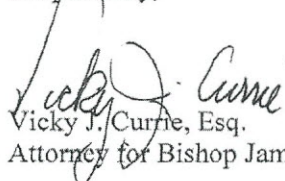 Vicky J. Currie
Vicky J. Currie, Esq.
Attorney for Bishop Jam